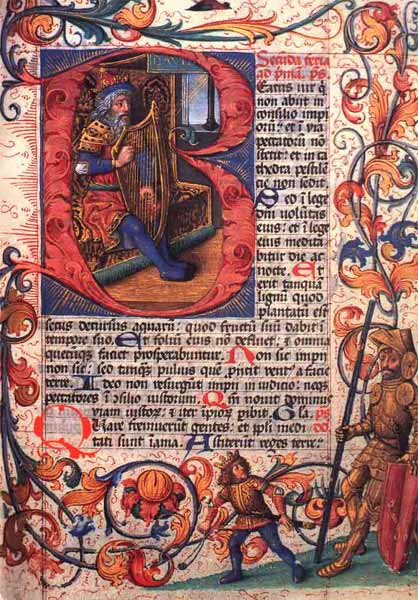 Secūda feria
ad p̄mā. ps
Beatus uir q̄
non abijt in
consilio imp
iorū: et ī uia
peccatorū nō
stetit: et in ca
thedra pestilē
tie non sedit.
Sed ī lege
dn̄i volūtas
eius: et ī lege
eius medita
bitur die ac
nocte. Et
erit tanquā
lignū quod
plantatū est
secus decursus aquarū: quod fructū suū dabit ī
tempore suo. Et foliū eius nō defluet: et omnia
quecūqꝫ faciet prosperabuntur. Non sic impij
non sic: sed tāqꝫ puluis que proicit ventꝰ a facie
terre. Ideo non resurgūt impij in iudicio: neqꝫ
peccatores ī cōsilio iustorum. Qm̄ nouit dominus
viam iustorꝫ: et iter īpiorꝫ pibit. Gla. ps
Quare fremuerūt gentes: et ppli medi
tati sunt īania. Astiterūt reges terre: